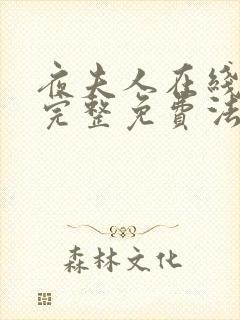 夜夫人在綫
完整免費法
森林文化